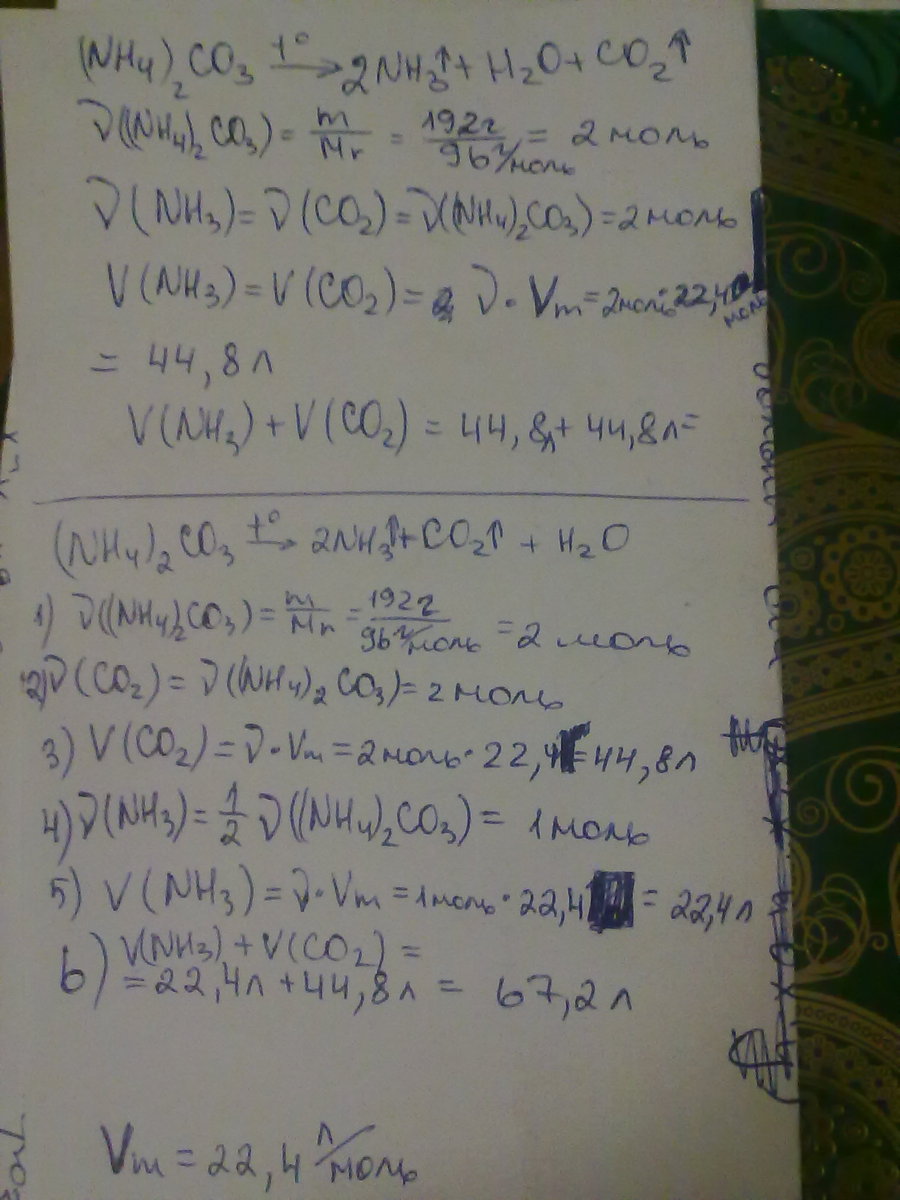 (NH4)2CO3 t°→ 2NH3↑+ H2O+ CO2↑
ν((NH4)2CO3)= m/Mr = 192г/96г/моль = 2 моль
ν(NH3)= ν(CO2)= ν((NH4)2CO3)=2 моль
V(NH3)=V(CO2)= ν·Vm=2моль·22,4 моль
= 44,8л
V(NH3)+V(CO2) = 44,8л+ 44,8л=
(NH4)2CO3 t°→ 2NH3↑+CO2↑ + H2O
1) ν((NH4)2CO3)= m/Mr =192г/96г/моль =2 моль
2)ν(CO2)= ν((NH4)2CO3)=2 моль
3) V(CO2)= ν·Vm=2моль·22,4=44,8л
4)ν(NH3)=1/2 ν((NH4)2CO3)= 1 моль
5) V(NH3)=ν·Vm=1моль·22,4 = 22,4л
6) V(NH3)+V(CO2)=
=22,4л+44,8л= 67,2л
Vm=22,4 л/моль